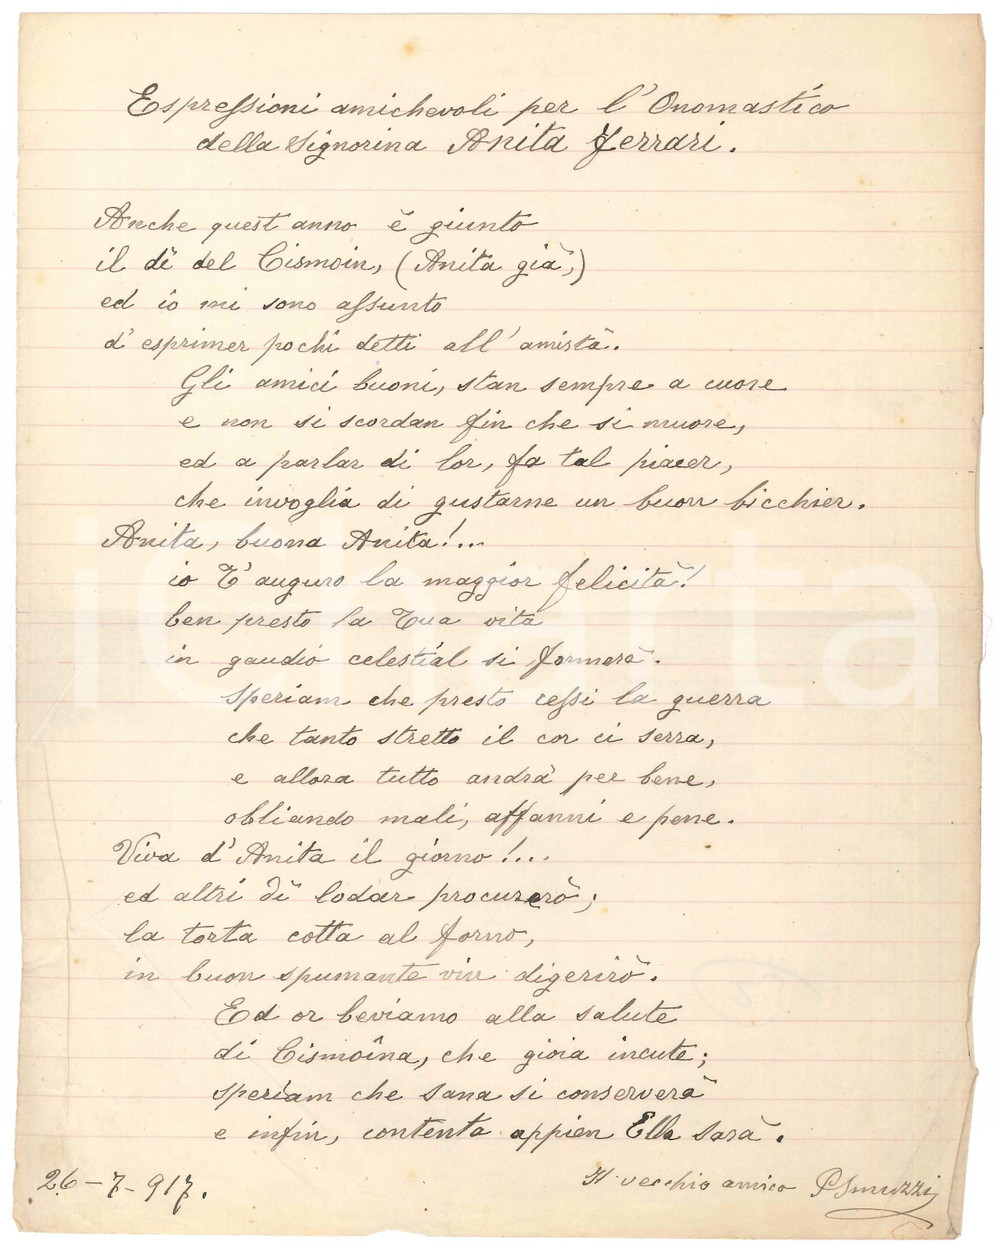 Espressioni amichevoli per l'Onomastico
della Signorina Anita Ferrari.
Anche quest'anno è giunto
il dì del Cismoin, (Anita già,)
ed io mi sono assunto
d'esprimer pochi detti all'amistà.
Gli amici buoni, stan sempre a cuore
e non si scordan fin che si muore,
ed a parlar di lor, fa tal piacer,
che invoglia di gustarne un buon bicchier.
Anita, buona Anita!...
io T'auguro la maggior felicità!
ben presto la Tua vita
in gaudio celestial si formerà.
Speriam che presto cessi la guerra
che tanto stretto il cor ci serra,
e allora tutto andrà per bene,
obliando mali, affanni e pene.
Viva d'Anita il giorno!...
ed altri dì lodar procurerò;
la torta cotta al forno,
in buon spumante vin digerirò.
Ed or beviamo alla salute
di Cismoîna, che gioia incute;
speriam che sana si conserverà
e infin, contenta appien Ella sarà.
26-7-917.
Il vecchio amico
iCharta